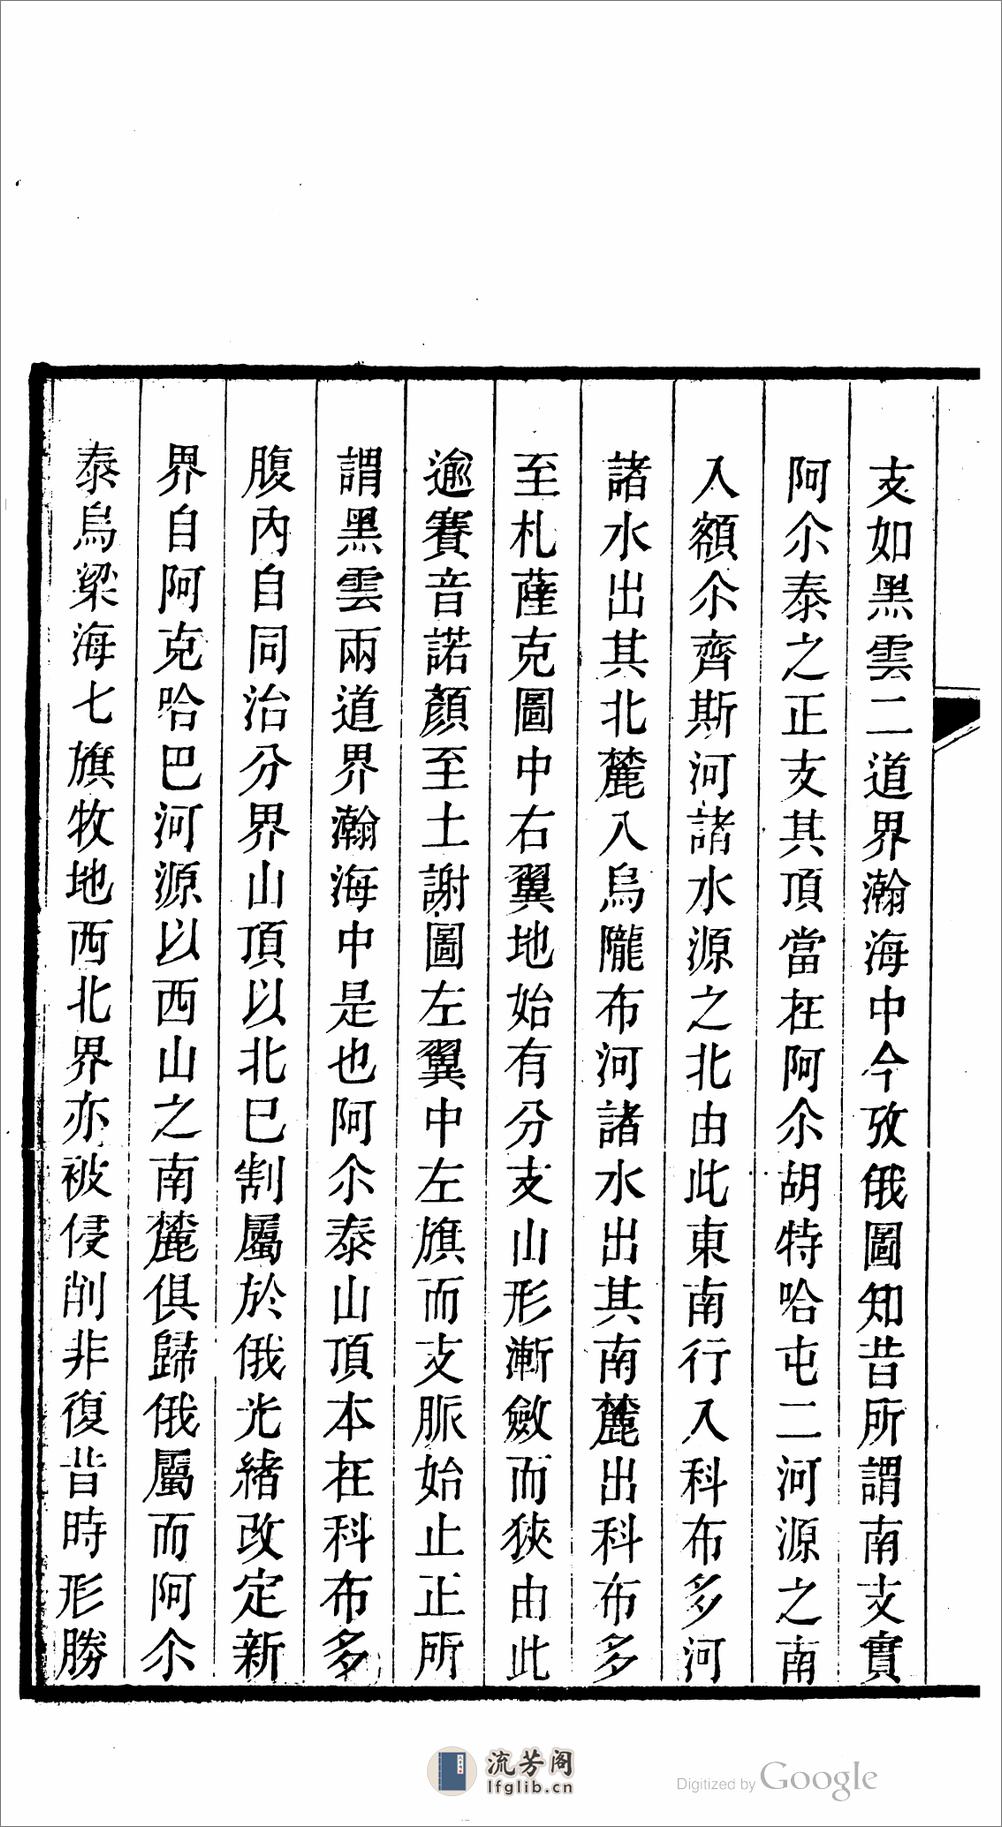 支如黑雲二道界瀚海中今攷俄圖知昔所謂南支實
阿尒泰之正支其頂當在阿尒胡特哈屯二河源之南
入額尒齊斯河諸水源之北由此東南行入科布多河
諸水出其北麓入烏隴布河諸水出其南麓出科布多
至札薩克圖中右翼地始有分支山形漸斂而狹由此
逾賽音諾顏至土謝圖左翼中左旗而支脈始止正所
謂黑雲兩道界瀚海中是也阿尒泰山頂本在科布多
腹內自同治分界山頂以北巳割屬於俄光緒改定新
界自阿克哈巴河源以西山之南麓俱歸俄屬而阿尒
泰烏梁海七旗牧地西北界亦被侵削非復昔時形勝
流芳阁
lfglib.cn
Digitized by Google